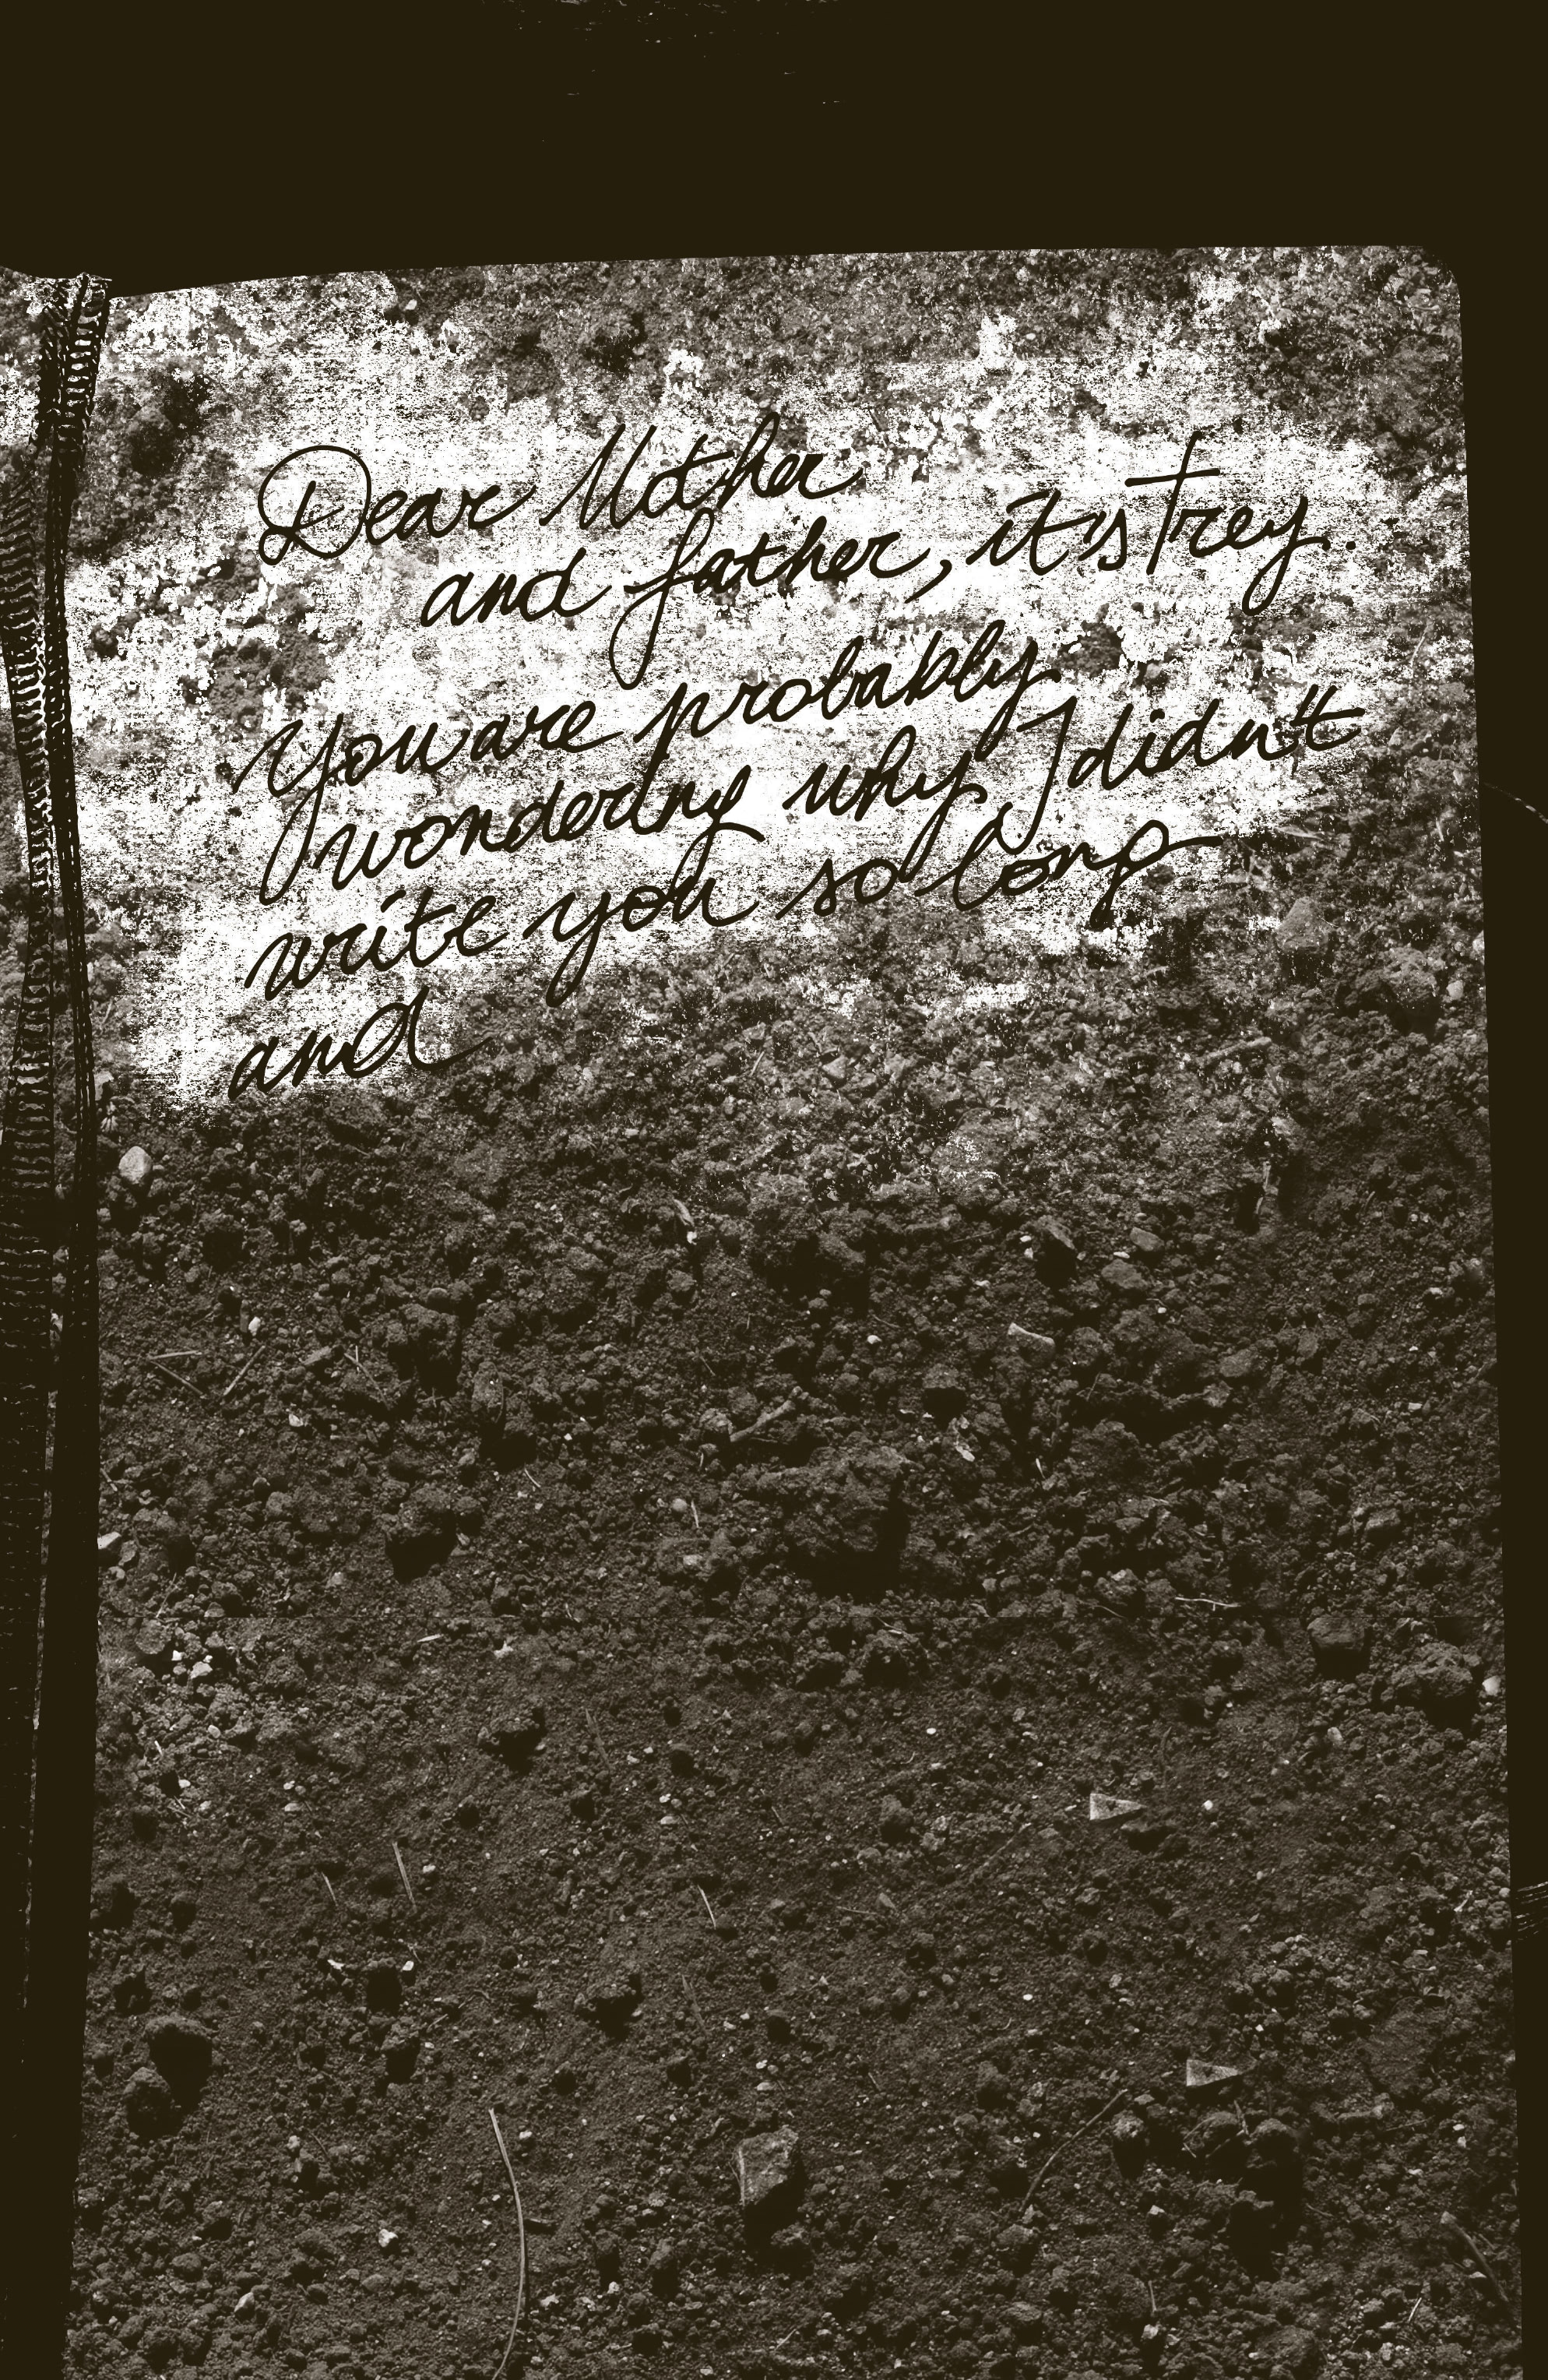 Dear Mother
and father, it's trey.
You are probably
wondering why I didn't
write you so long
and